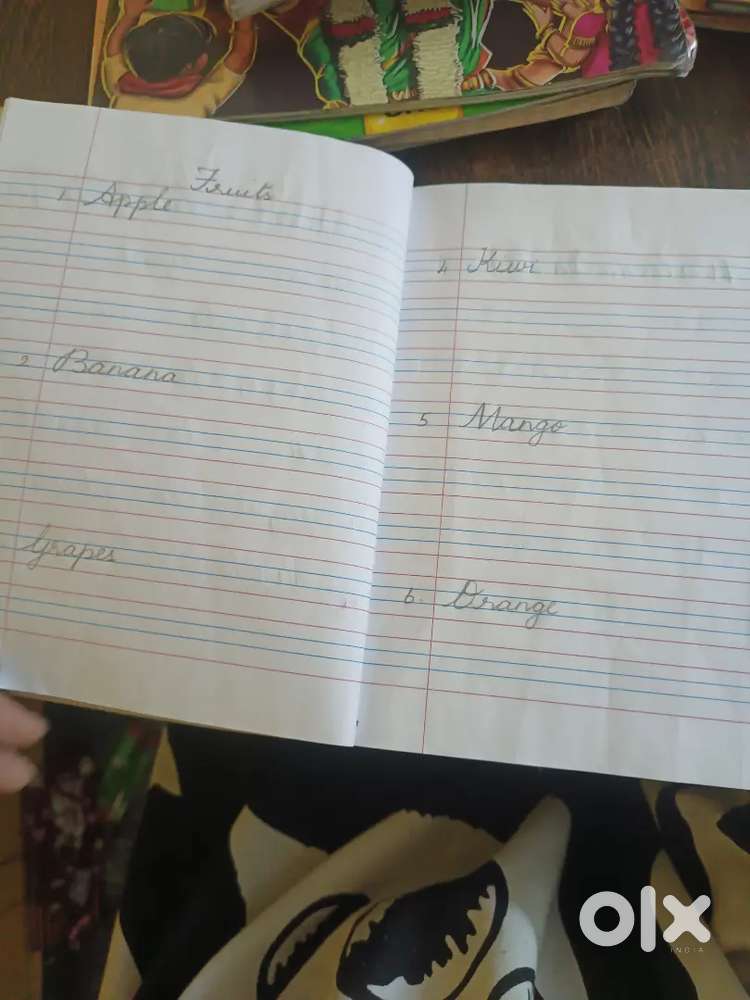 Fruits
1. Apple
2. Banana
Grapes
4. Kiwi
5 Mango
6. Orange
olx
INDIA